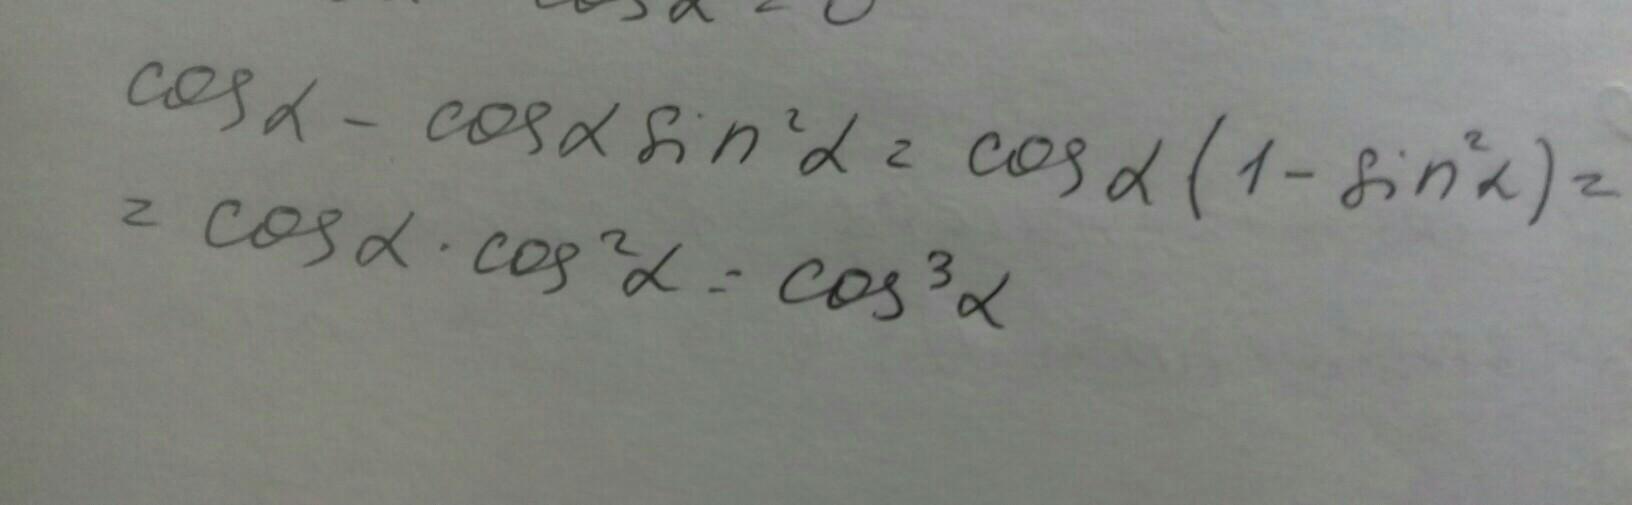 cosα = 0
cosα - cosα sin²α = cosα (1 - sin²α) =
= cosα · cos²α = cos³α